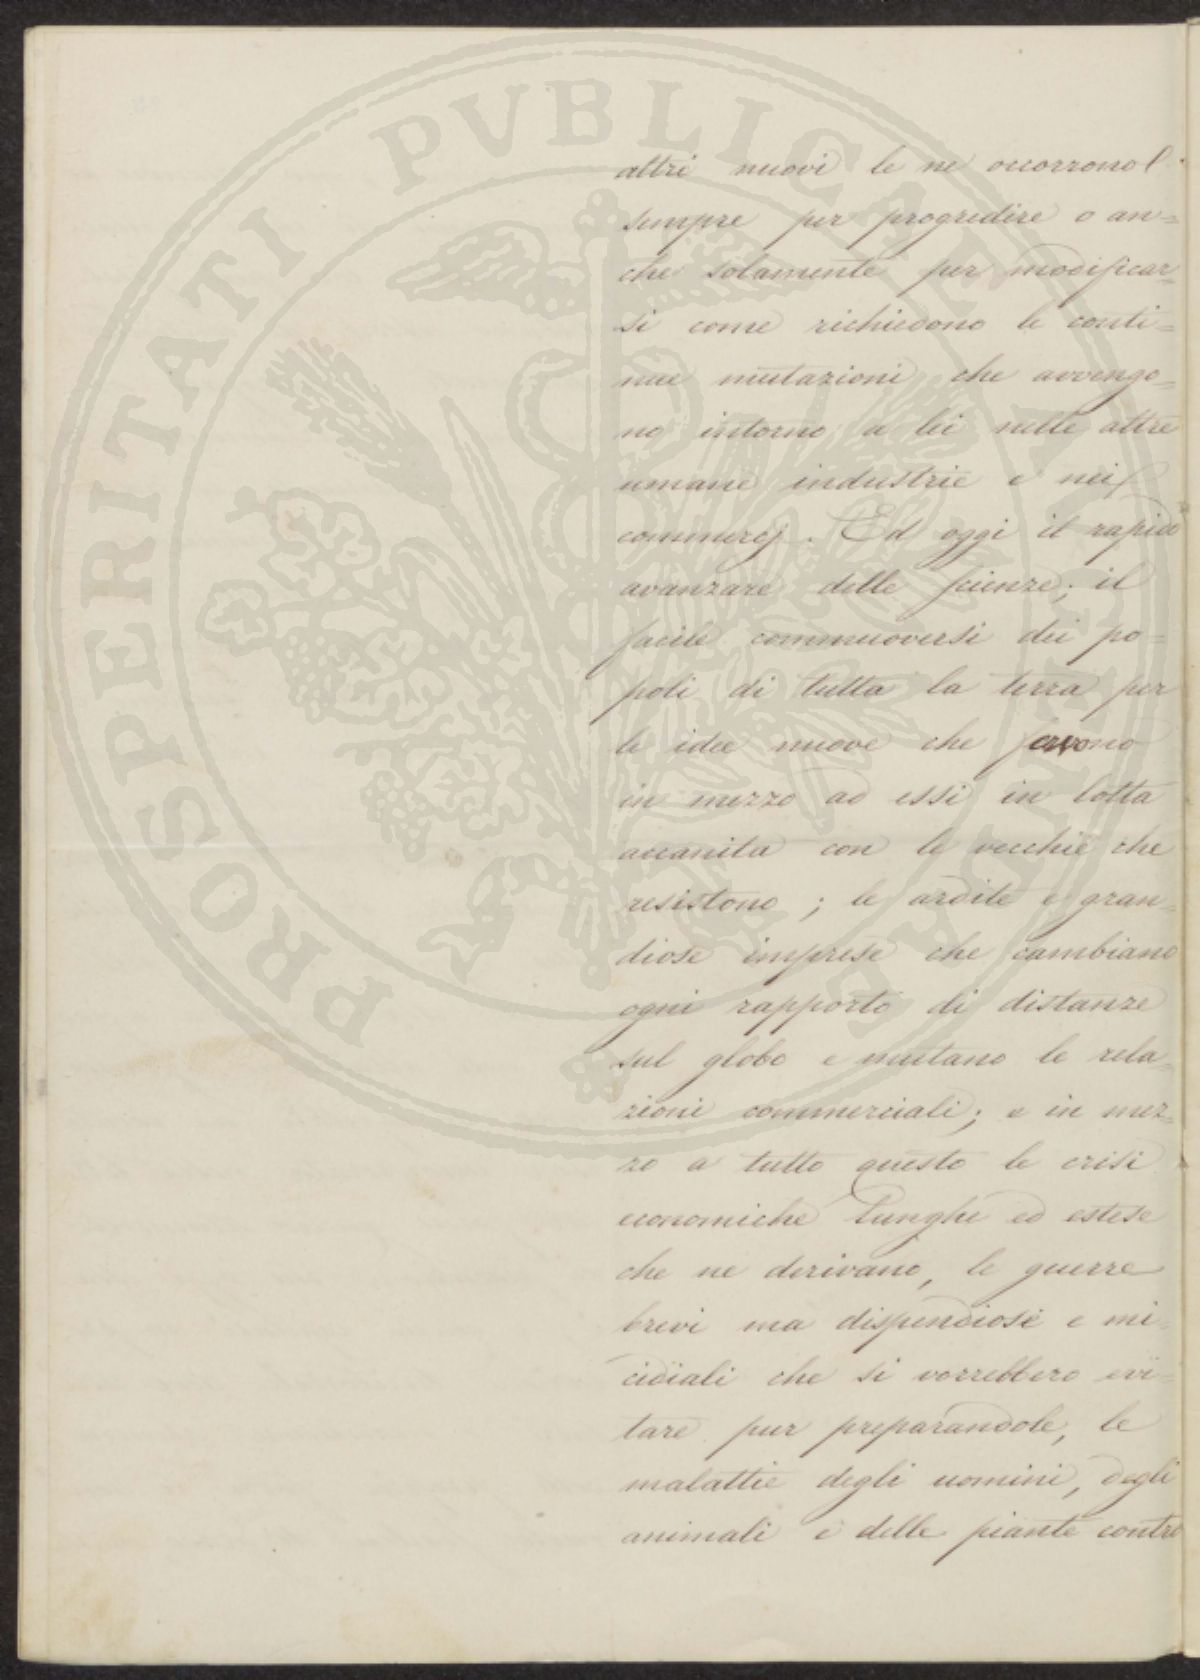 PROSPERITATI PVBLICAE AVGENDAE
altri nuovi le ne occorrono
sempre per progredire o an=
che solamente per modificar=
si come richiedono le conti=
nue mutazioni che avvengo=
no intorno a lei nelle altre
umane industrie e nei
commercj. Ed oggi il rapido
avanzare delle scienze; il
facile commuoversi dei po=
poli di tutta la terra per
le idee nuove che fervono
in mezzo ad essi in lotta
accanita con le vecchie che
resistono; le ardite e gran=
diose imprese che cambiano
ogni rapporto di distanze
sul globo e mutano le rela=
zioni commerciali; e in mez=
zo a tutto questo le crisi
economiche lunghe ed estese
che ne derivano, le guerre
brevi ma dispendiose e mi=
cidiali che si vorrebbero evi=
tare pur preparandole, le
malattie degli uomini, degli
animali e delle piante contro